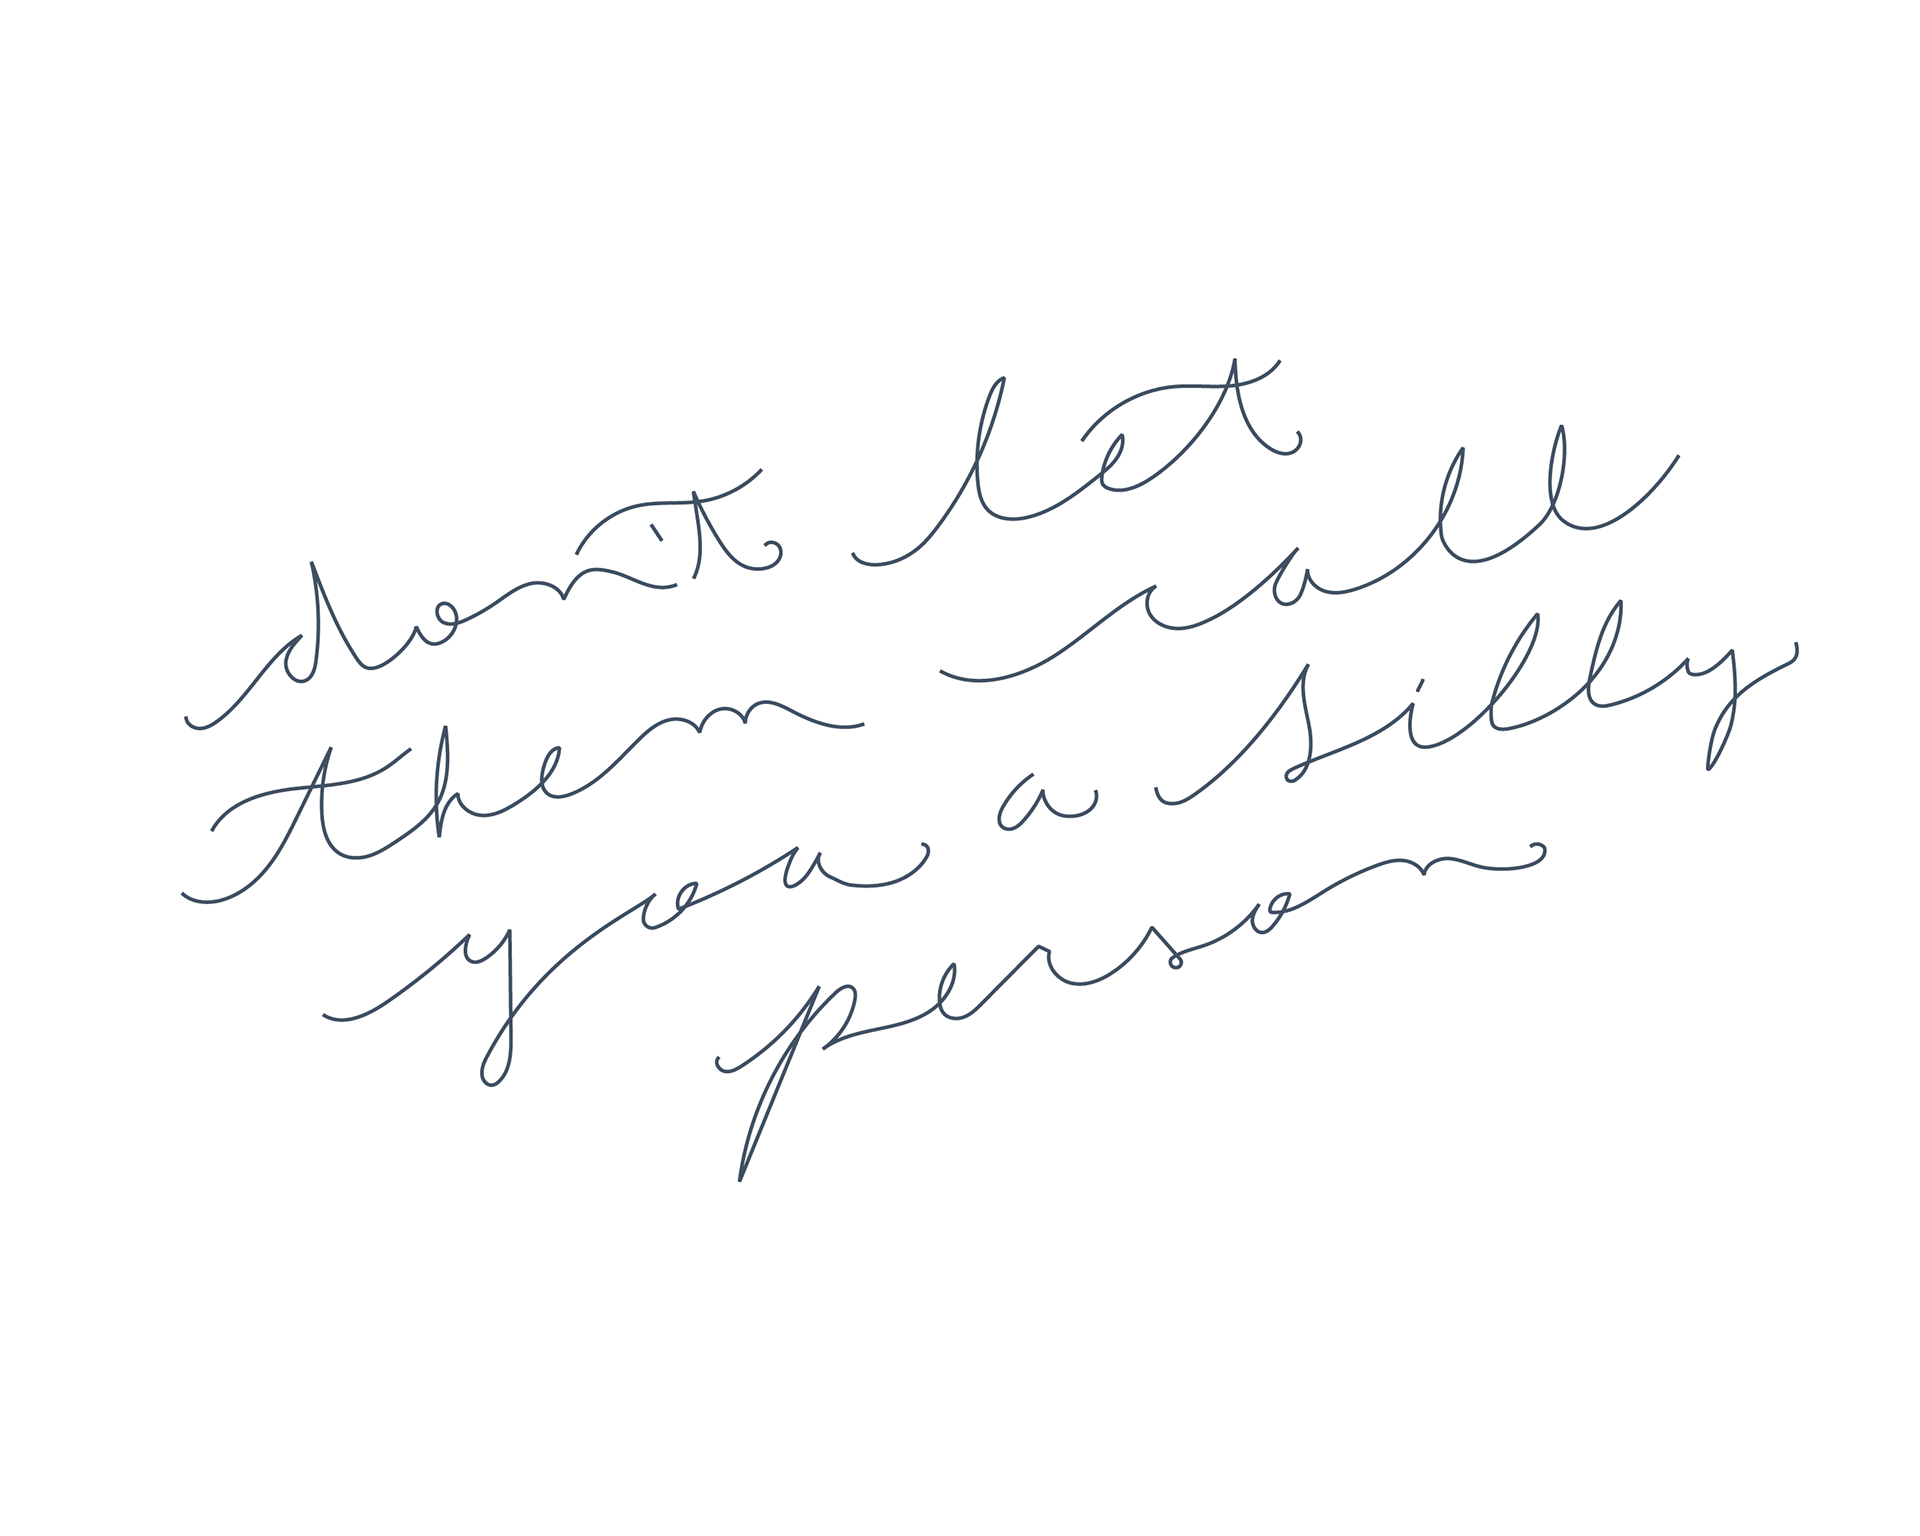 don't let
them call
you a silly
person